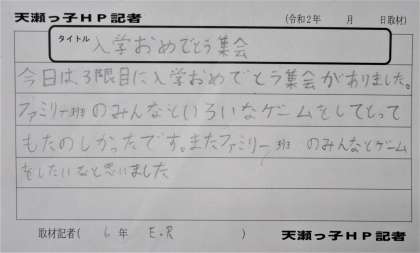 天瀬っ子HP記者 (令和2年 月 日取材)
タイトル 入学おめでとう集会
今日は、3限目に入学おめでとう集会がありました。
ファミリー班のみんなといろいなゲームをしてとって
もたのしかったです。またファミリー班 のみんなとゲーム
をしたいなと思いました
取材記者( 6年 E.R ) 天瀬っ子HP記者